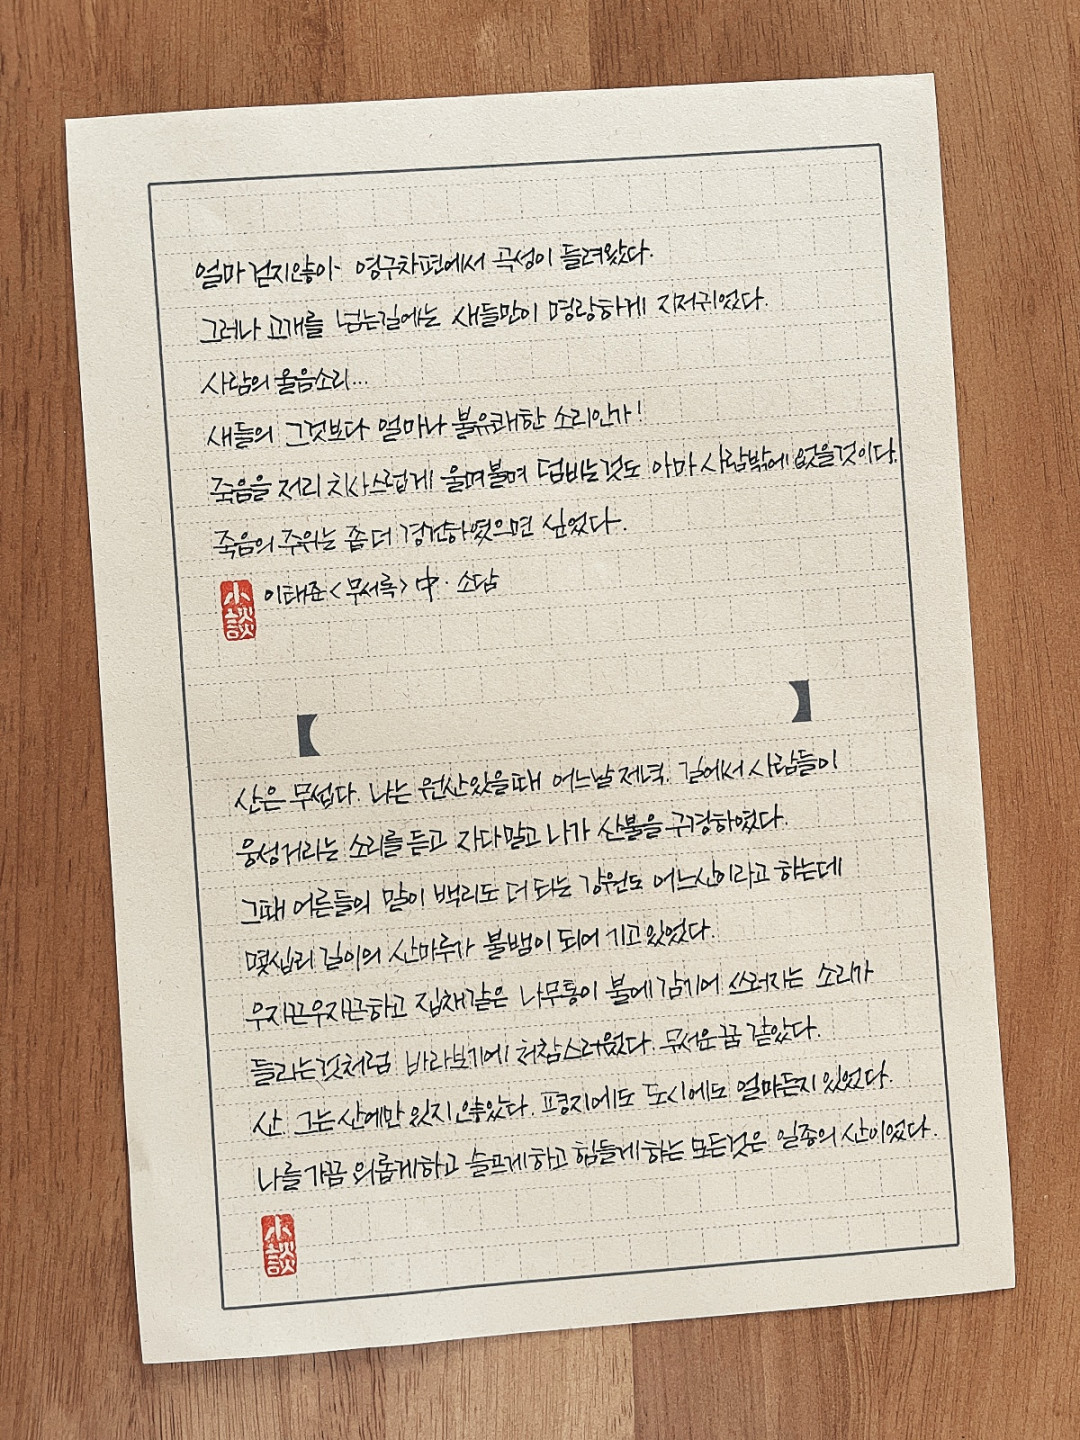 얼마 걷지않아 영구차편에서 곡성이 들려왔다.
그러나 고개를 넘는길에는 새들만이 명랑하게 지저귀었다.
사람의 울음소리...
새들의 그것보다 얼마나 불유쾌한 소리인가!
죽음을 저리 치사스럽게 울며불며 덤비는것도 아마 사람밖에 없을것이다.
죽음의 주위는 좀 더 경건하였으면 싶었다.
小談 이태준<무서록>中. 소담
산은 무섭다. 나는 원산있을때 어느날 저녁. 길에서 사람들이
웅성거리는 소리를 듣고 자다말고 나가 산불을 구경하였다.
그때 어른들의 말이 백리도 더 되는 강원도 어느산이라고 하는데
몇십리 길이의 산마루가 불뱀이 되어 기고있었다.
우지끈우지끈하고 집채같은 나무통이 불에 감기어 쓰러지는 소리가
들리는것처럼 바라보기에 처참스러웠다. 무서운 꿈 같았다.
산. 그는 산에만 있지 않았다. 평지에도 도시에도 얼마든지 있었다.
나를 가끔 외롭게하고 슬프게하고 힘들게하는 모든것은 일종의 산이었다.
小談